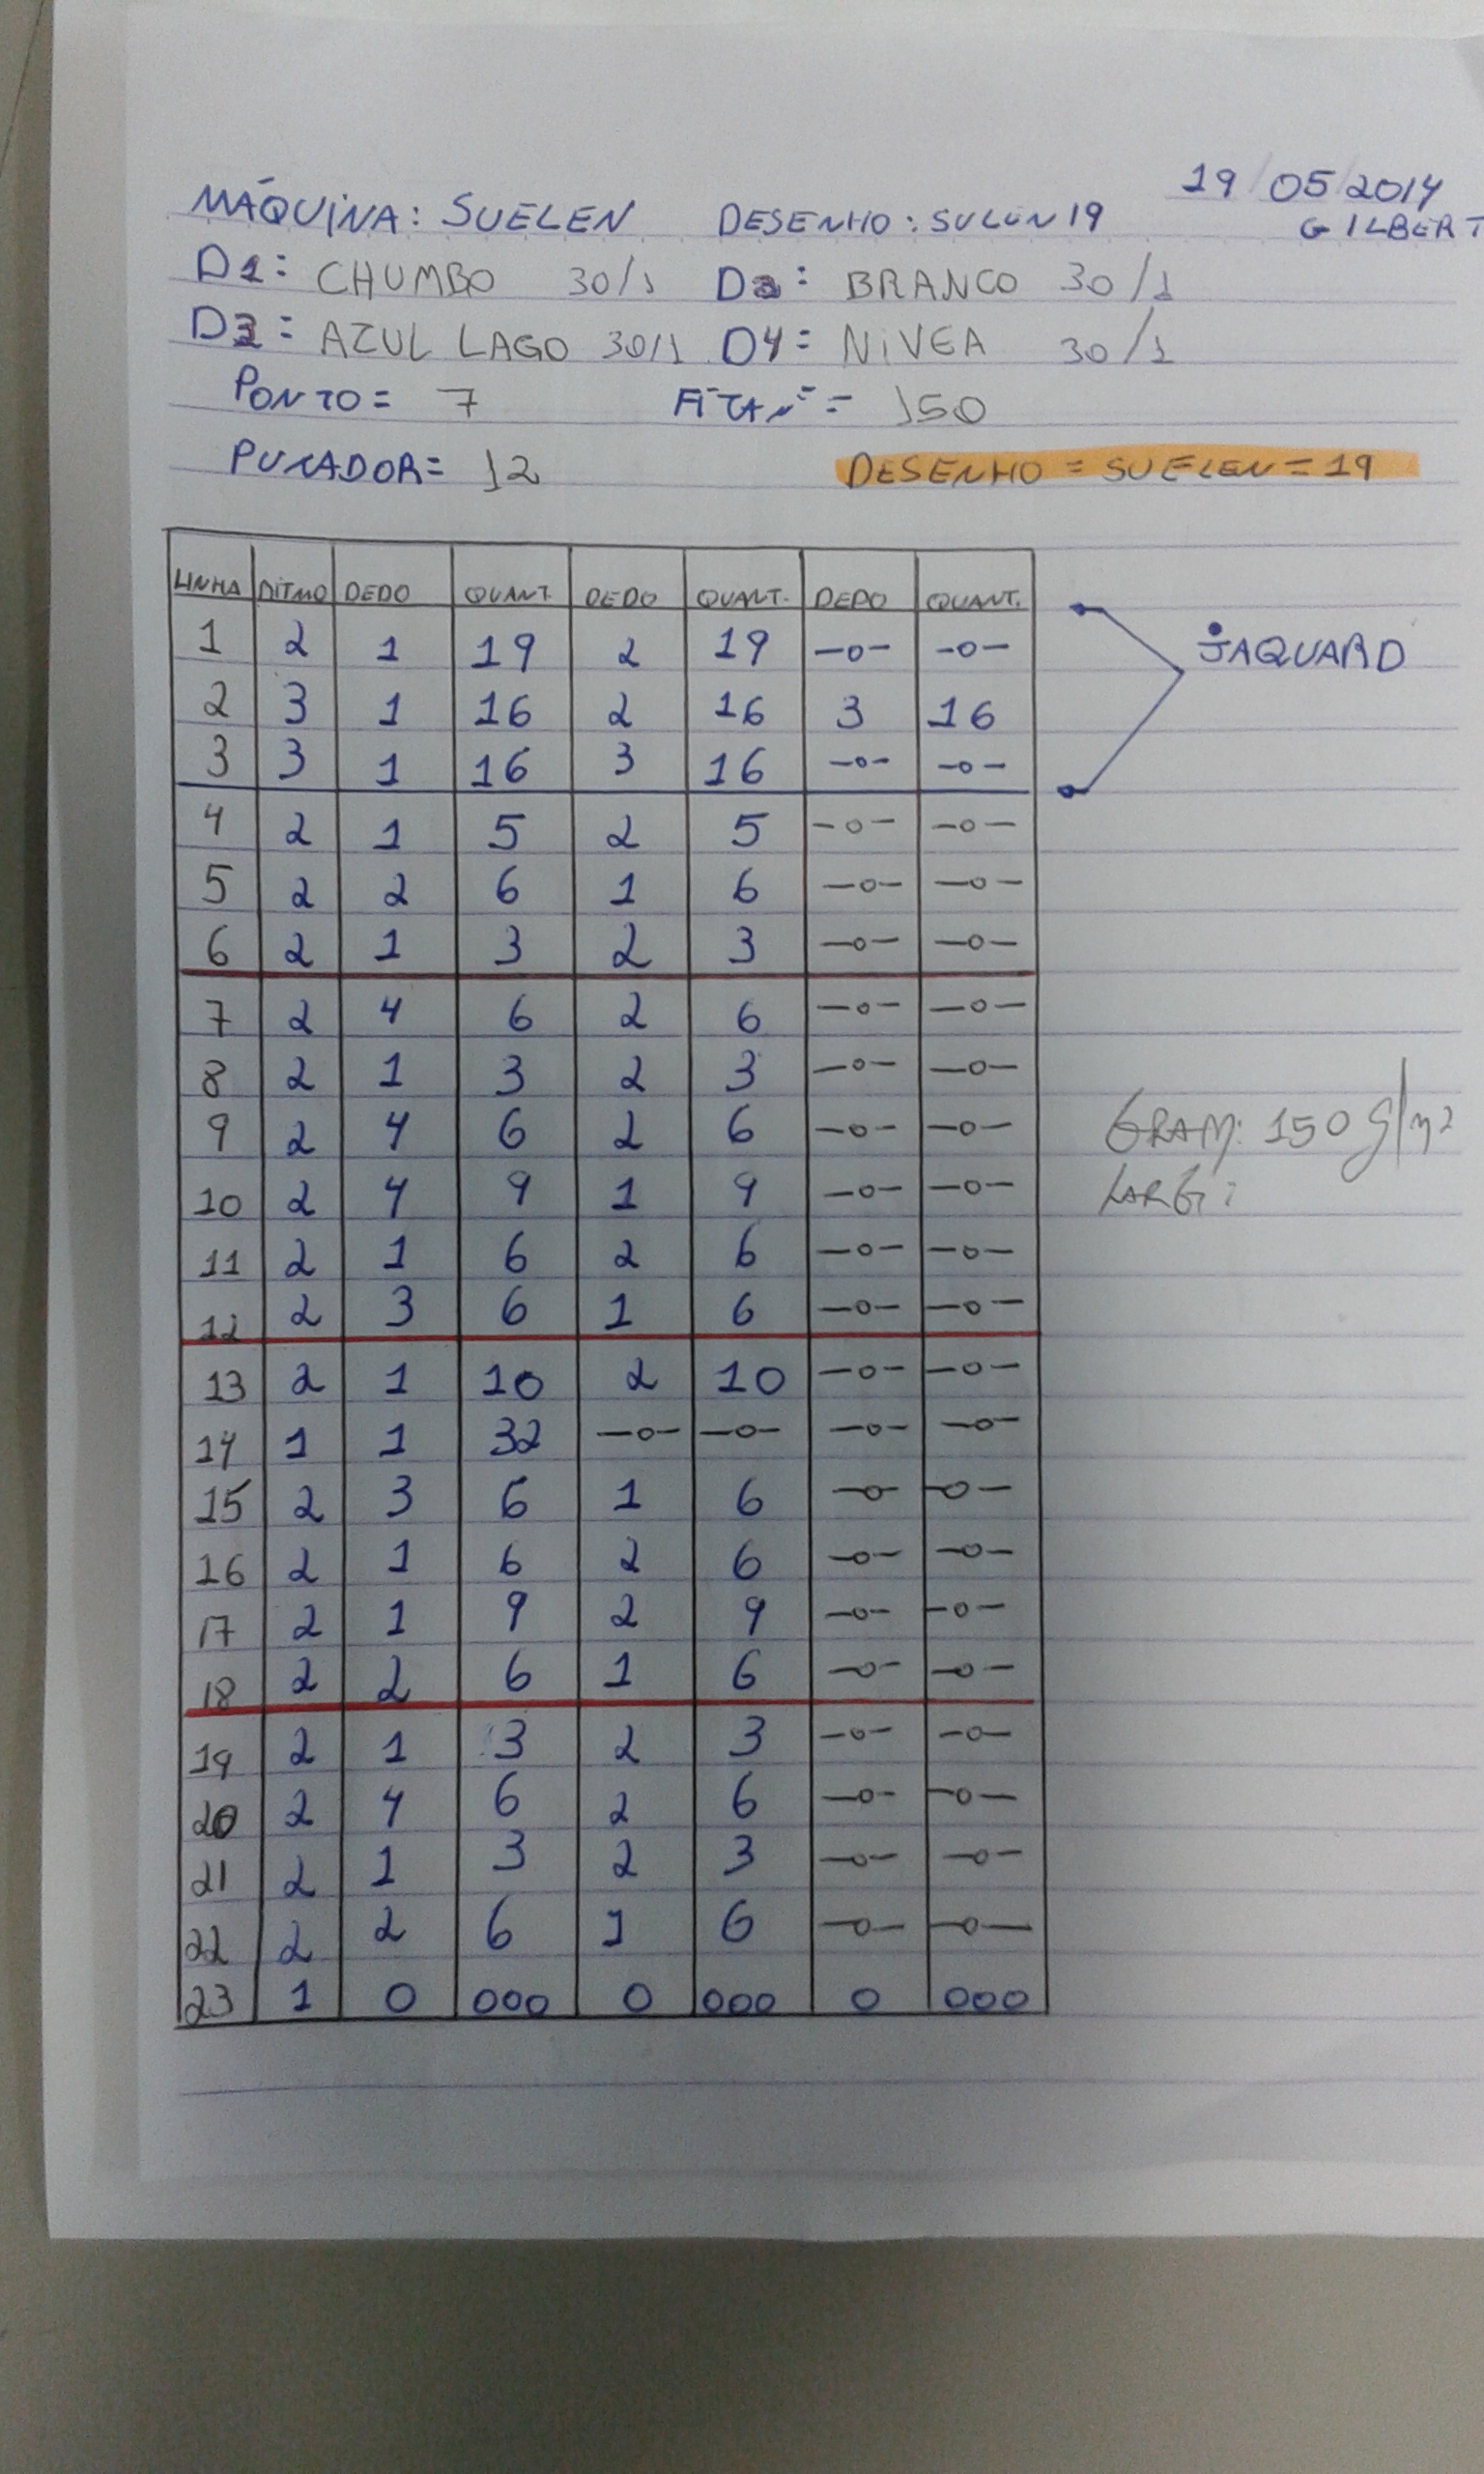 19/05/2014
MÁQUINA: SUELEN DESENHO: SULEN19 GILBERT
D1: CHUMBO 30/1 D2: BRANCO 30/1
D3= AZUL LAGO 30/1 D4= NIVEA 30/1
PONTO= 7 = 150
PUXADOR= 12 DESENHO = SUELEN = 19
LINHA RITMO DEDO QUANT. DEDO QUANT. DEDO QUANT.
1 2 1 19 2 19 -o- -o- JAQUARD
2 3 1 16 2 16 3 16
3 3 1 16 3 16 -o- -o-
4 2 1 5 2 5 -o- -o-
5 2 2 6 1 6 -o- -o-
6 2 1 3 2 3 -o- -o-
7 2 4 6 2 6 -o- -o-
8 2 1 3 2 3 -o- -o-
9 2 4 6 2 6 -o- -o- GRAM: 150 g/m2
10 2 4 9 1 9 -o- -o- LARG:
11 2 1 6 2 6 -o- -o-
12 2 3 6 1 6 -o- -o-
13 2 1 10 2 10 -o- -o-
14 1 1 32 -o- -o- -o- -o-
15 2 3 6 1 6 -o- -o-
16 2 1 6 2 6 -o- -o-
17 2 1 9 2 9 -o- -o-
18 2 2 6 1 6 -o- -o-
19 2 1 3 2 3 -o- -o-
20 2 4 6 2 6 -o- -o-
21 2 1 3 2 3 -o- -o-
22 2 2 6 1 6 -o- -o-
23 1 0 000 0 000 0 000